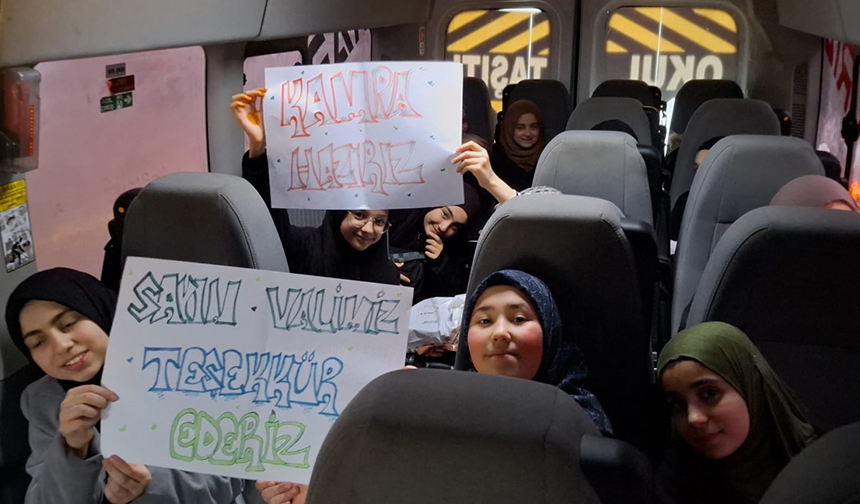 OKUL
TAŞITI
KAMPA
HAZIRIZ
SAYIN VALİMİZ
TEŞEKKÜR
EDERİZ